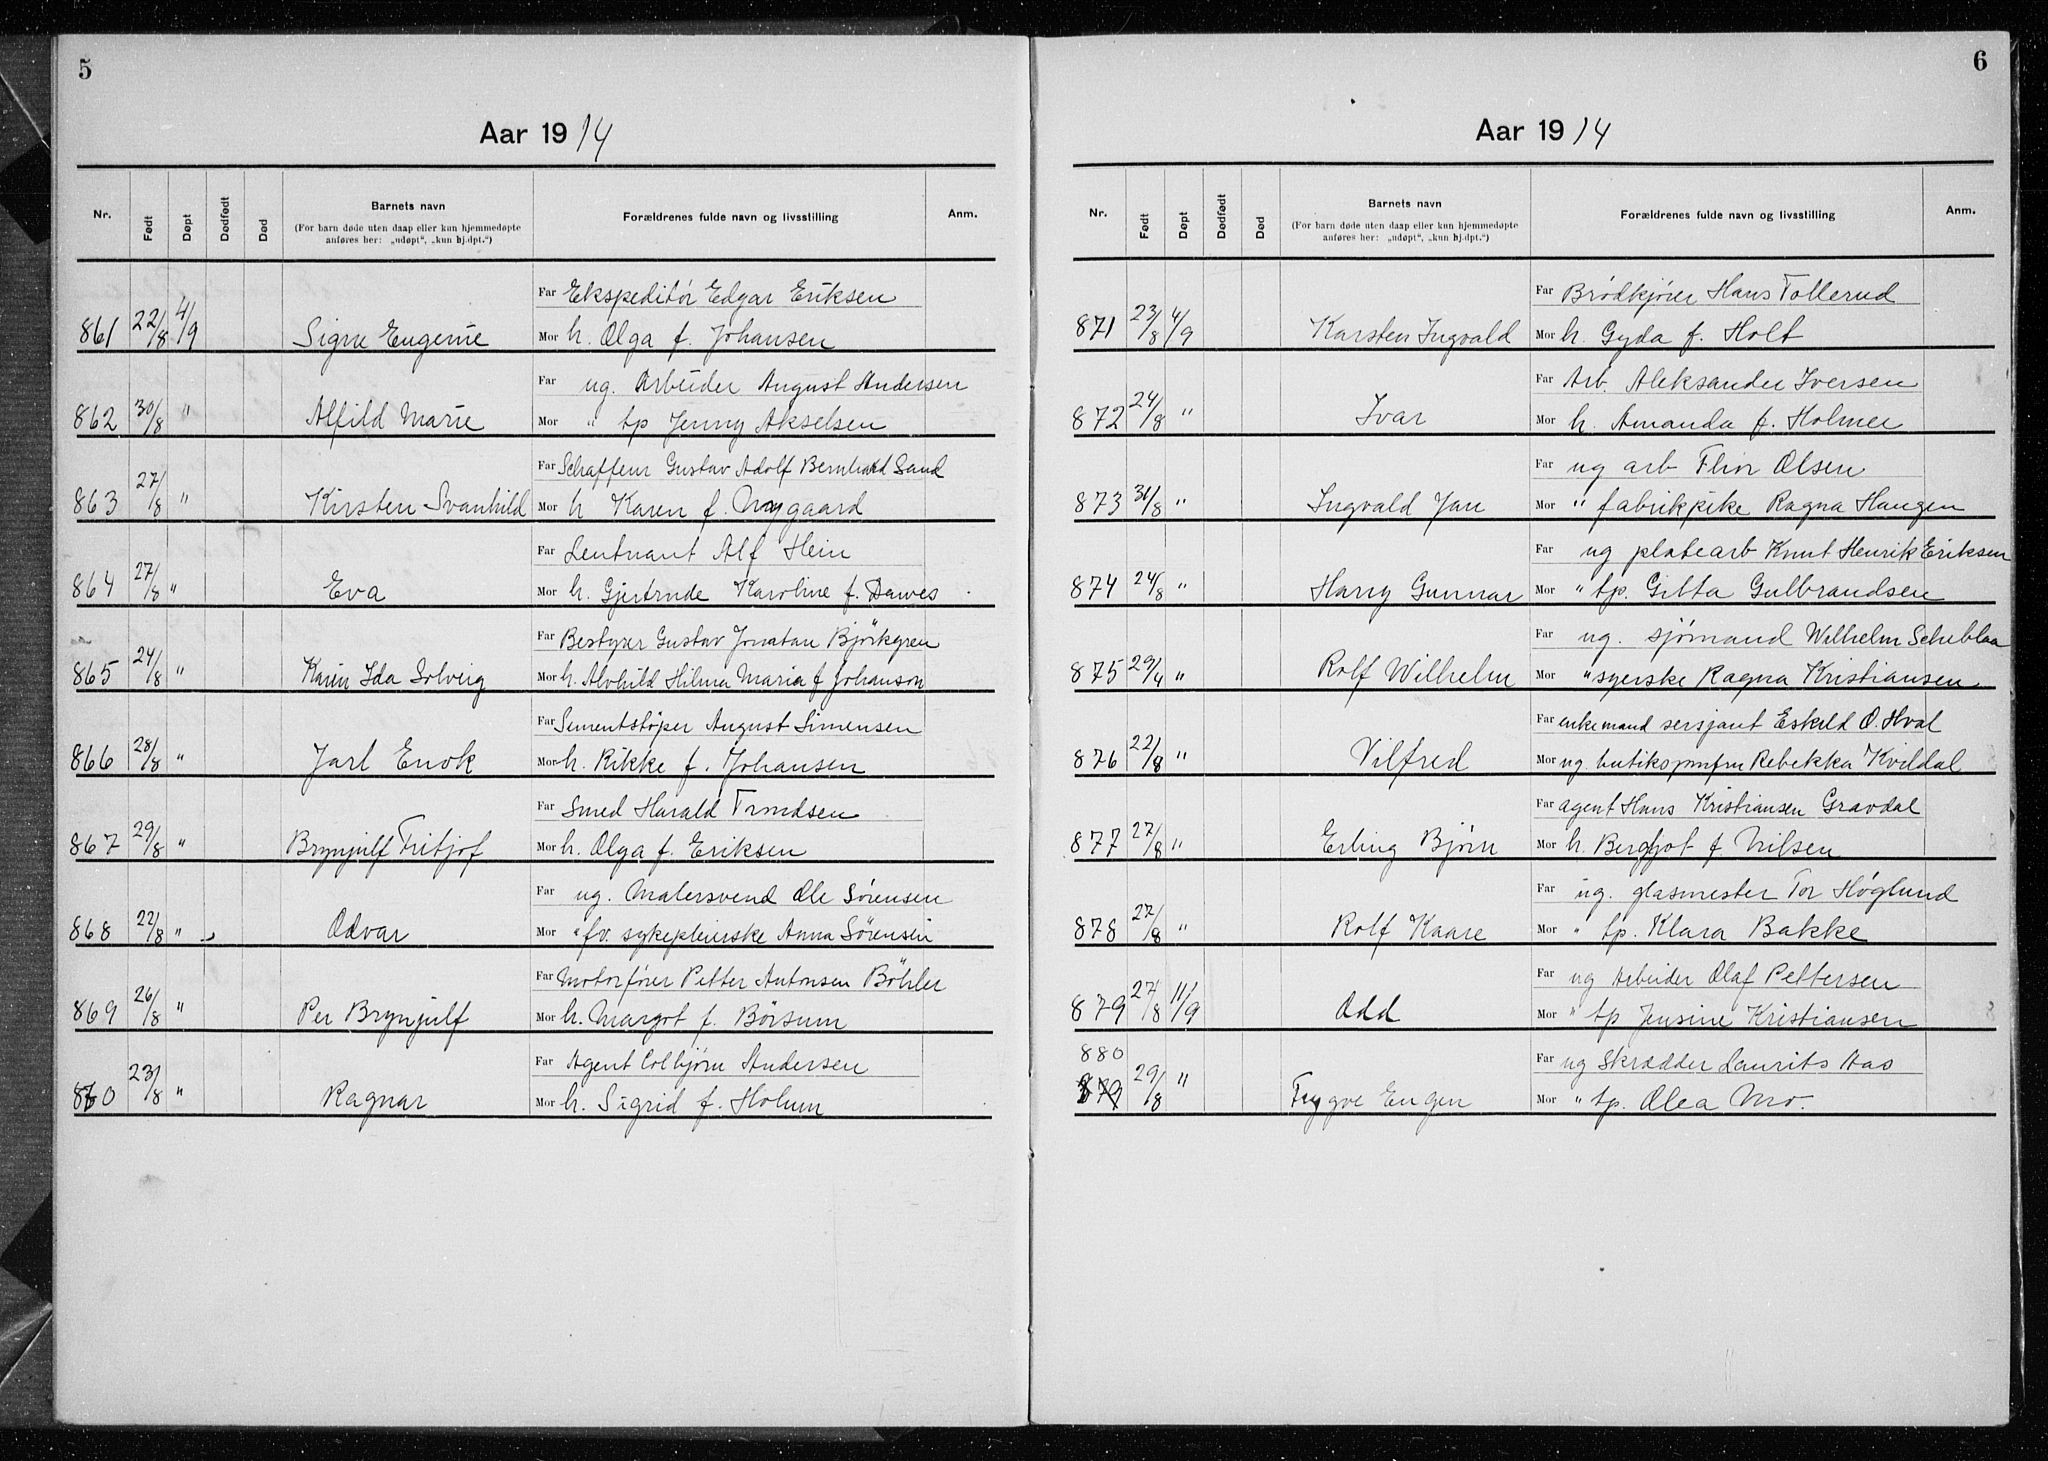 5
Aar 1914
Nr.
Født
Døpt
Dødfødt
Død
Barnets navn
(For barn døde uten daap eller kun hjemmedøpte
anføres her: „udøpt“, „kun hj.dpt.“)
Forældrenes fulde navn og livsstilling
Anm.
Far Ekspeditør Edgar Eriksen
861 22/8 4/9 Signe Eugenie Mor h. Olga f. Johansen
Far ug. Arbeider August Andersen
862 30/8 " Alfild Marie Mor " tp Jenny Akselsen
Far Schaffeur Gustav Adolf Bernhard Sand
863 27/8 " Kirsten Svanhild Mor h Karen f. Nygaard
Far Leutnant Alf Hein
864 27/8 " Eva Mor h. Gjertrude Karoline f. Dawes
Far Bestyrer Gustav Jonatan Björkgren
865 24/8 " Karin Ida Solveig Mor h. Alvhild Hilma Maria f Johanson
Far Sementstöper August Simensen
866 28/8 " Jarl Enok Mor h. Rikke f. Johansen
Far Smed Harald Trondsen
867 29/8 " Brynjulf Fritjof Mor h. Olga f. Eriksen
Far ug. Malersvend Ole Sørensen
868 22/8 " Odvar Mor " fv. sykepleierske Anna Sørensen
Far Motorfører Petter Antonsen Böhler
869 26/8 " Per Brynjulf Mor h. Margot f. Börsum
Far Agent Colbjørn Andersen
870 23/8 " Ragnar Mor h. Sigrid f. Holum
6
Aar 1914
Nr.
Født
Døpt
Dødfødt
Død
Barnets navn
(For barn døde uten daap eller kun hjemmedøpte
anføres her: „udøpt“, „kun hj.dpt.“)
Forældrenes fulde navn og livsstilling
Anm.
Far Brødkjører Hans Tollerud
871 23/8 4/9 Karsten Ingvald Mor h. Gyda f. Holt
Far Arb. Aleksander Iversen
872 24/8 " Ivar Mor h. Amanda f. Holmer
Far ug arb Thor Olsen
873 31/8 " Ingvald Jan Mor " fabrikpike Ragna Haugen
Far ug platearb Knut Henrik Eriksen
874 24/8 " Harry Gunnar Mor " tp. Gitta Gulbrandsen
Far ug. sjømand Wilhelm
875 29/4 " Rolf Wilhelm Mor " syerske Ragna Kristiansen
Far enkemand sersjant Eskild O. Hval
876 22/8 " Vilfred Mor ug. butiksjomfru Rebekka Kvildal
Far agent Hans Kristiansen Gravdal
877 27/8 " Erling Bjørn Mor h. Bergljot f. Nilsen
Far ug. glasmester Tor Høglund
878 27/8 " Rolf Kaare Mor " tp. Klara Bakke
Far ug Arbeider Olaf Pettersen
879 27/8 11/9 Odd Mor " tp Jensine Kristiansen
880 Far ug Skrædder Laurits Aas
879 29/8 " Trygve Engen Mor " tp. Olea Mo.